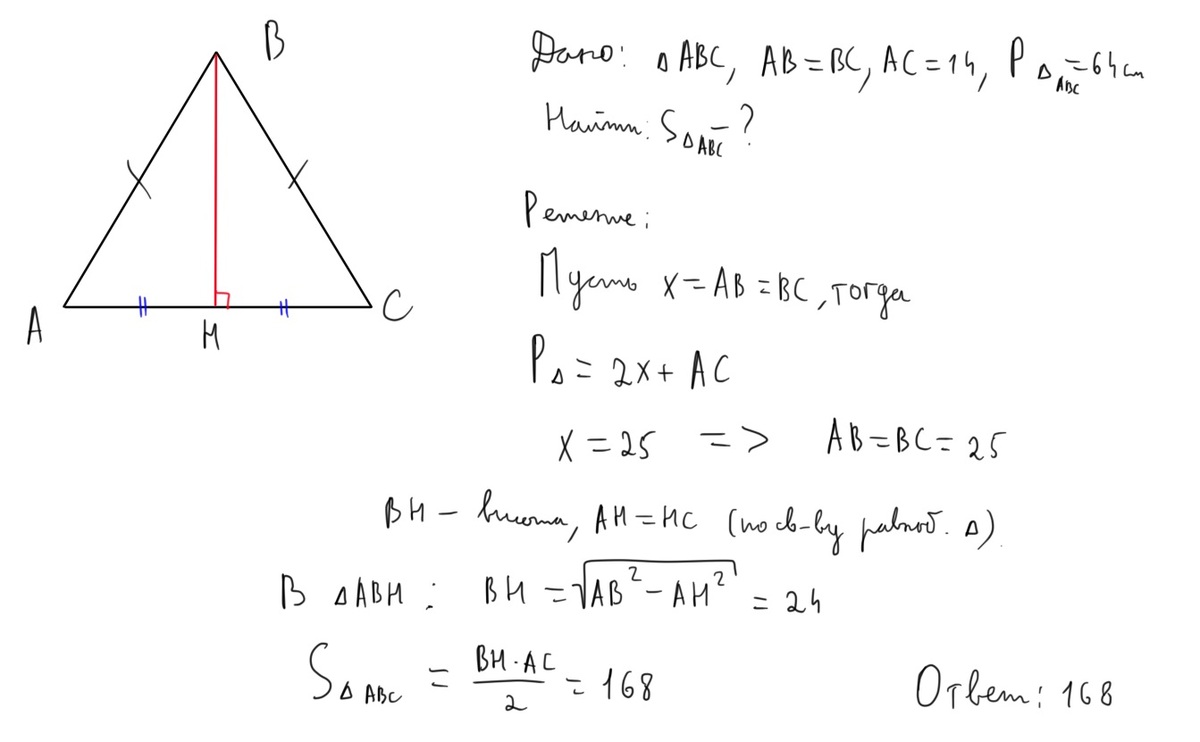 B
Дано: △ ABC, AB = BC, AC = 14, P △ ABC = 64 см
Найти: S △ ABC - ?
Решение:
Пусть x = AB = BC, тогда
P △ = 2x + AC
x = 25 => AB = BC = 25
A H C
BH – высота, AH = HC (по св-ву равноб. △).
В △ABH : BH = √AB² − AH² = 24
S △ ABC = BH · AC / 2 = 168
Ответ: 168